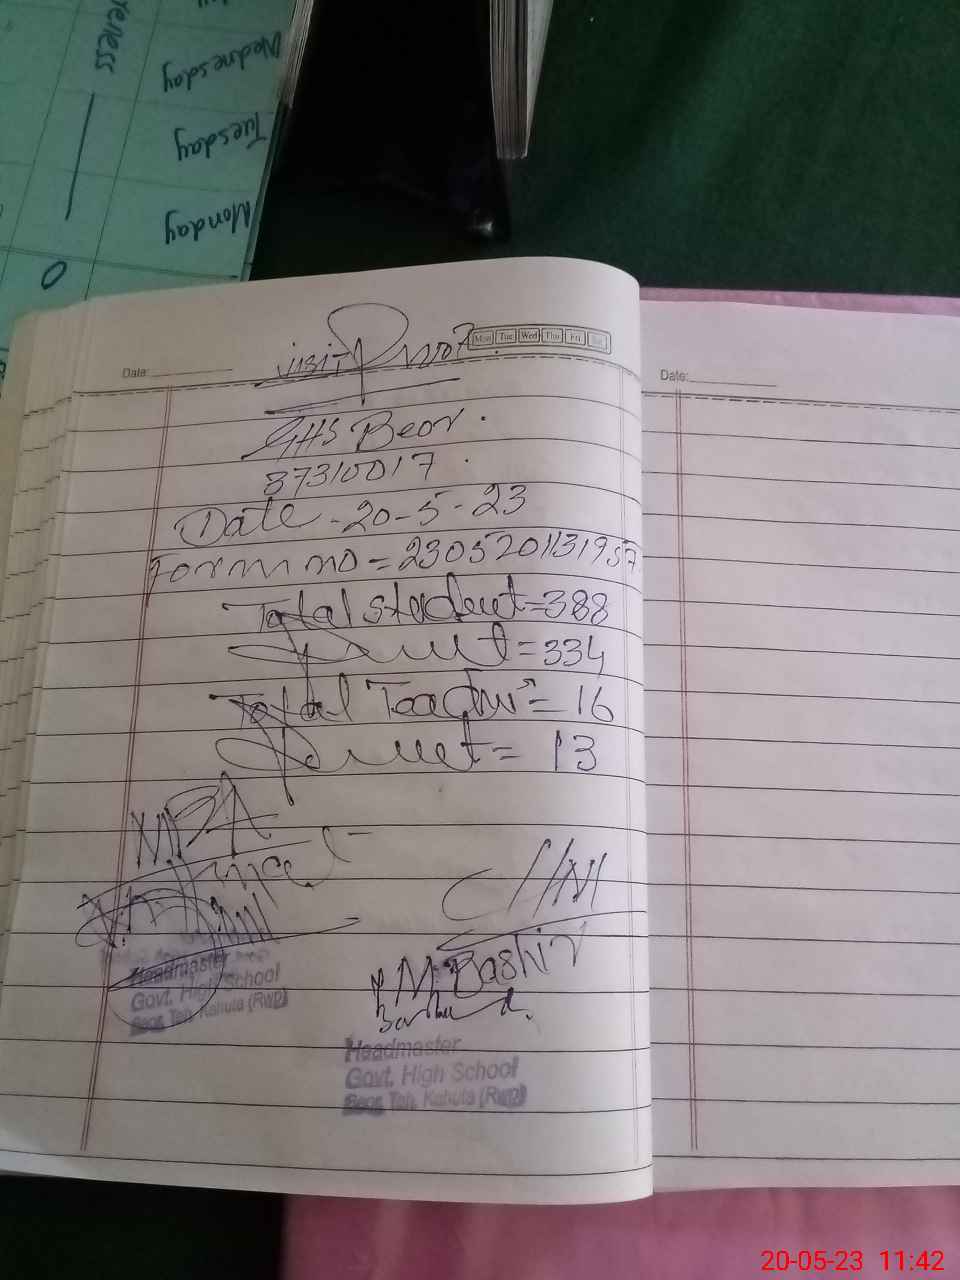 Wednesday
Tuesday
Monday
Mon Tue Wed Thu Fri Sat
Date:
Date:
visit
GHS Beor.
37310017.
Date - 20-5-23
Form no = 2305201131957
Total student = 388
= 334
Total Teacher = 16
= 13
MPA
M. Bashir
Headmaster
Govt. High School
Beor Teh. Kahuta (RWP)
Headmaster
Govt. High School
Beor Teh. Kahuta (RWP)
20-05-23 11:42